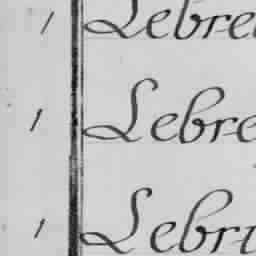 1 Lebre
1 Lebre
1 Lebri